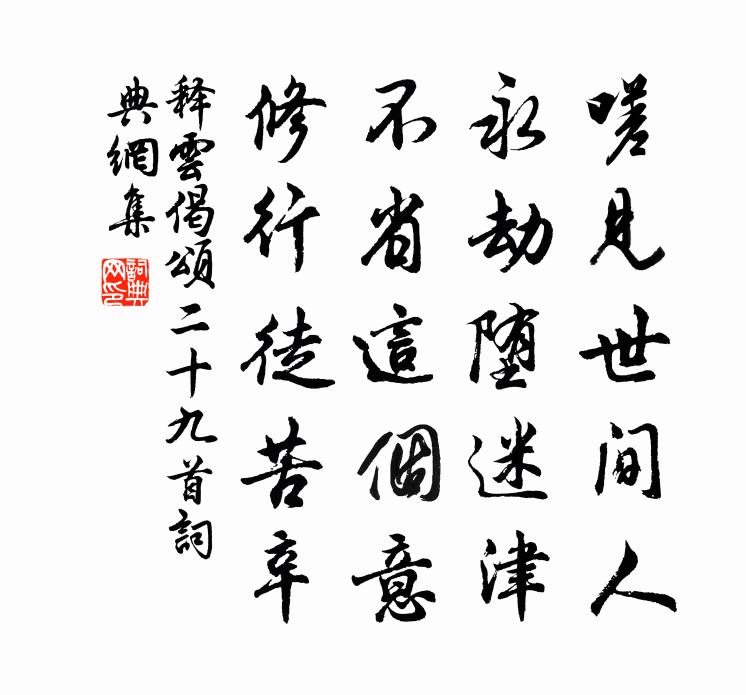 嗟見世间人
永劫堕迷津
不省這個意
修行徒苦辛
释雲偈頌二十九首詞
典網集
詞典网印